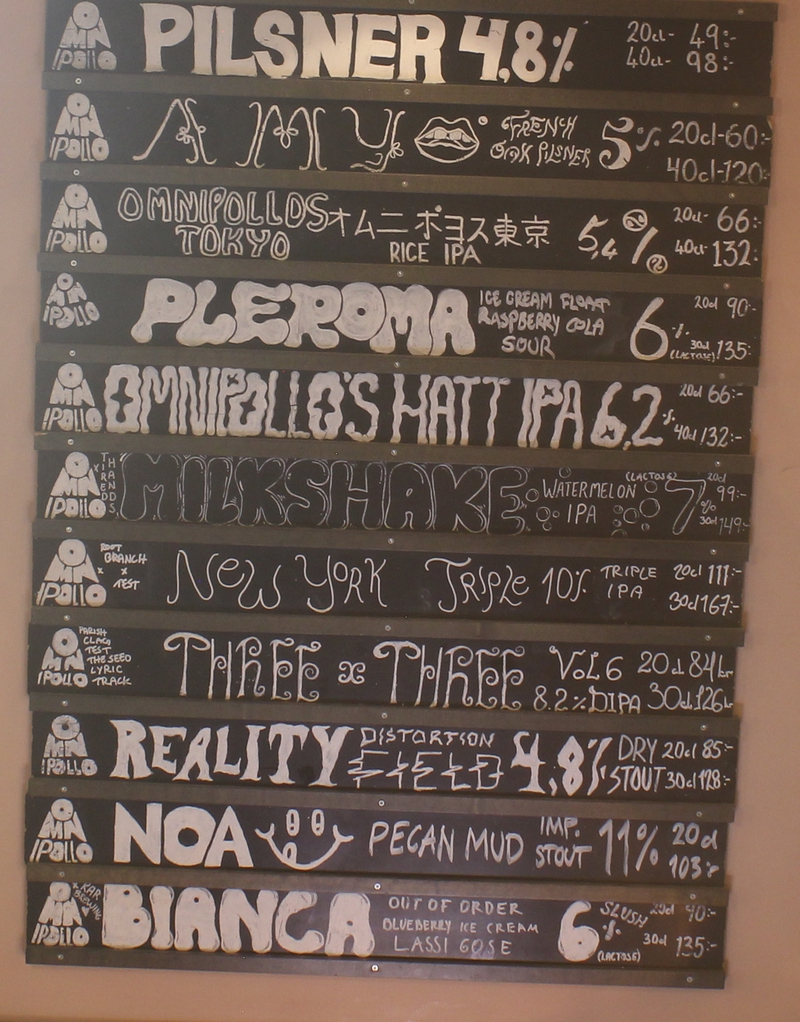 OMNIPOLLO PILSNER 4,8% 20cl- 49:-
40cl- 98:-
OMNIPOLLO AMY FRENCH OAK PILSNER 5% 20cl-60:-
40cl-120:-
OMNIPOLLO OMNIPOLLOS TOKYO オムニポヨス東京 RICE IPA 5,4% 20cl- 66:-
40cl- 132:-
OMNIPOLLO PLEROMA ICE CREAM FLOAT RASPBERRY COLA SOUR 6% (LACTOSE) 20cl 90:-
30cl 135:-
OMNIPOLLO OMNIPOLLO'S HATT IPA 6,2% 20cl 66:-
40cl 132:-
OMNIPOLLO x TIRED HANDS MILKSHAKE WATERMELON IPA (LACTOSE) 7% 20cl 99:-
30cl 149:-
OMNIPOLLO ROOT BRANCH x x TEST NEW YORK TRIPLE 10% TRIPLE IPA 20cl 111:-
30cl 167:-
OMNIPOLLO PARISH CLAG TEST THE SEED LYRIC TRACK THREE x THREE VOL 6 20cl 84kr
8.2% DIPA 30cl 126kr
OMNIPOLLO REALITY DISTORTION FIELD 4,8% DRY STOUT 20cl 85:-
30cl 128:-
OMNIPOLLO NOA PECAN MUD IMP. STOUT 11% 20cl
103:-
OMNIPOLLO x KAR BREWING BIANCA OUT OF ORDER
BLUEBERRY ICE CREAM
LASSI GOSE 6% (LACTOSE) SLUSH 20cl 90:-
30cl 135:-